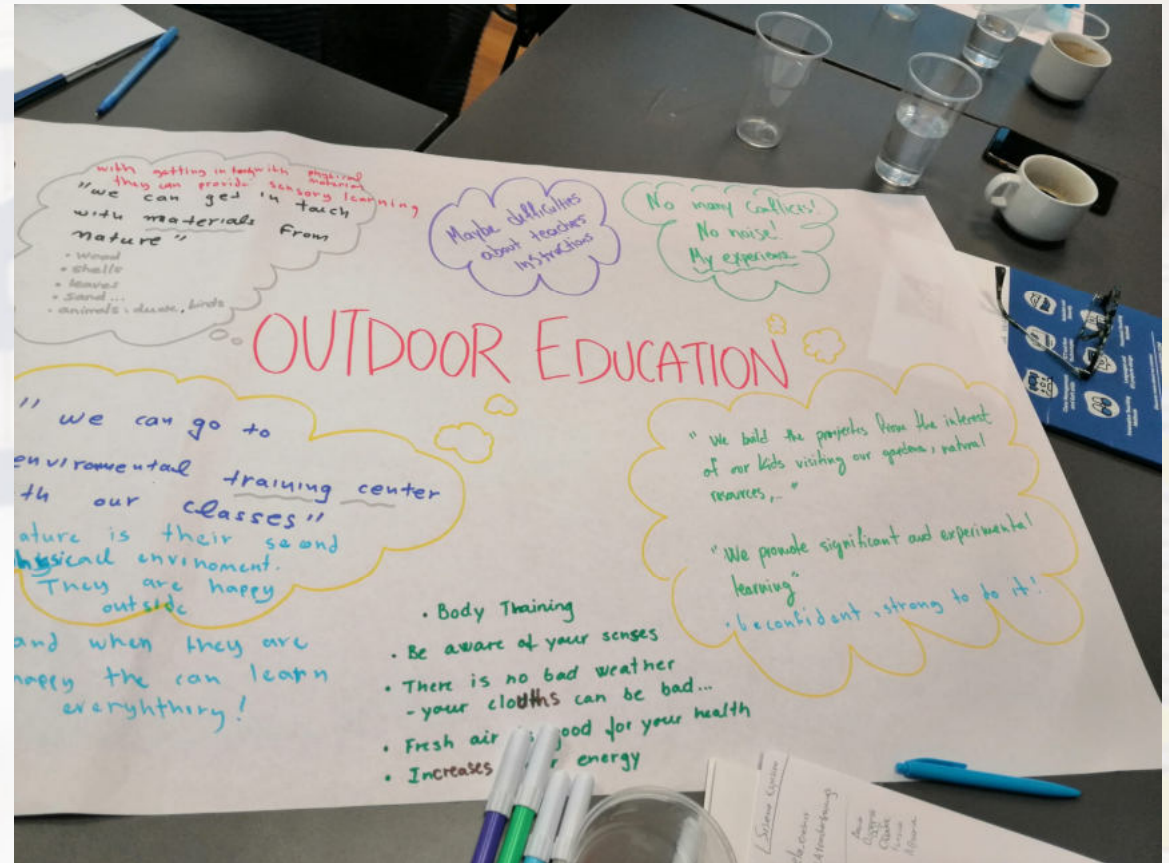 with getting in touch with physical material
they can provide sensory learning
"we can get in touch
with materials from
nature"
• wood
• shells
• leaves
• sand...
• animals: ducks, birds
Maybe difficulties
about teachers
instructions
No many conflicts!
No noise!
My experience
OUTDOOR EDUCATION
" we can go to
enviromental training center
th our classes"
ature is their second
hysicall envinoment.
They are happy
outside
and when they are
happy the can learn
everyhthing!
" We build the from the interest
of our kids visiting our gardens, natural
resources,.. "
"We promote significant and experimental
learning"
• be confident, strong to do it!
• Body Training
• Be aware of your senses
• There is no bad weather
- your clouths can be bad...
• Fresh air is good for your health
• Increases energy